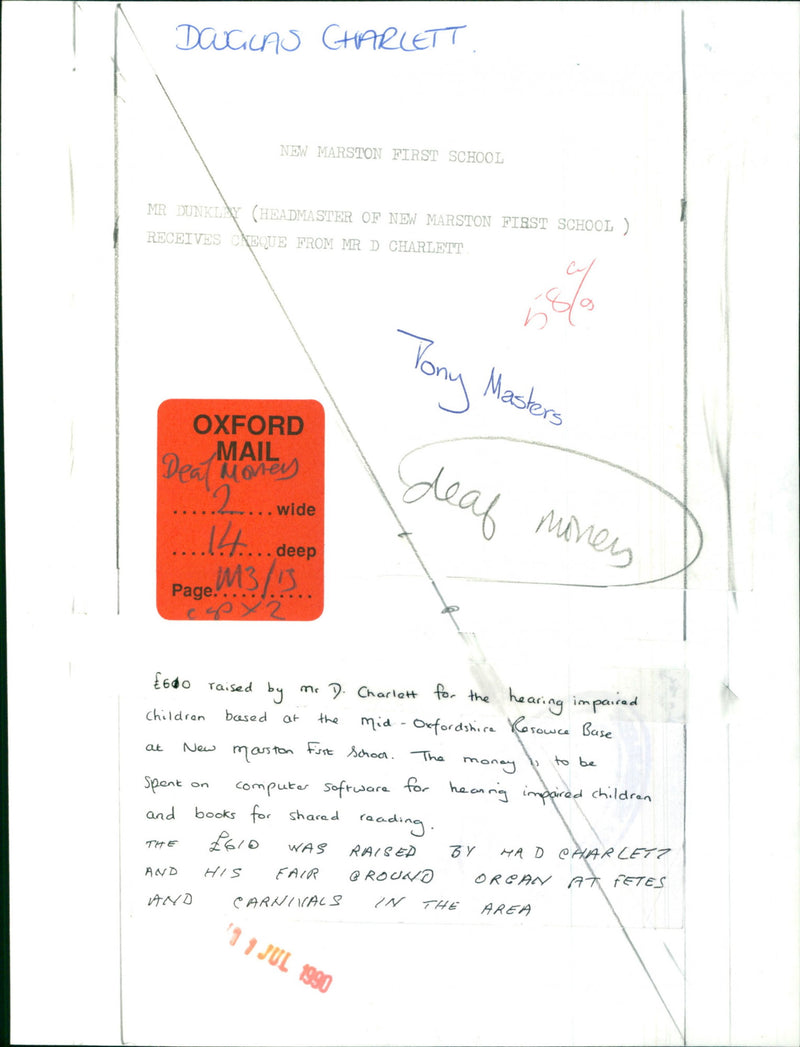 DOUGLAS CHARLETT.
NEW MARSTON FIRST SCHOOL
MR DUNKLEY (HEADMASTER OF NEW MARSTON FIRST SCHOOL )
RECEIVES CHEQUE FROM MR D CHARLETT
Tony Masters
OXFORD
MAIL
Deaf Money
2 wide
14 deep
Page M3/13
cap x 2
deaf money
£610 raised by Mr D. Charlett for the hearing impaired
children based at the Mid-Oxfordshire Resource Base
at New Marston First School. The money is to be
spent on computer software for hearing impaired children
and books for shared reading.
THE £610 WAS RAISED BY MR D CHARLETT
AND HIS FAIR GROUND ORGAN AT FETES
AND CARNIVALS IN THE AREA
11 JUL 1990